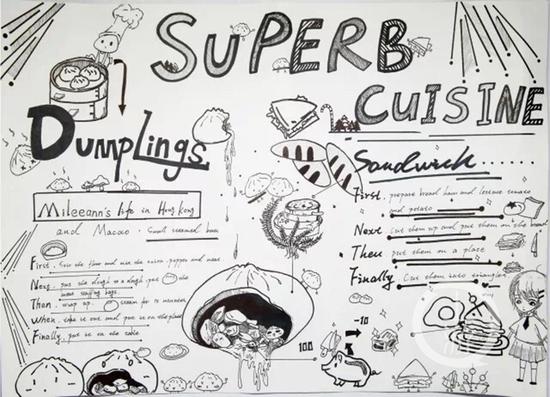 SUPERB
CUISINE
Dumplings
Mileeann's life in Hong Kong
and Macao. Small steamed bun
First. Save the time and mix the onion, pepper and meat
Next. put the dough to a dough, put the
Then. wrap up. steam for 10 minutes
When. take it out and put it on the plate
Finally. put it on the table
Sandwich......
First. prepare bread ham and lettuce tomato
and potato
Next cut them up and put them on the bread
Then put them on a place
Finally cut them into triangles
100
-10